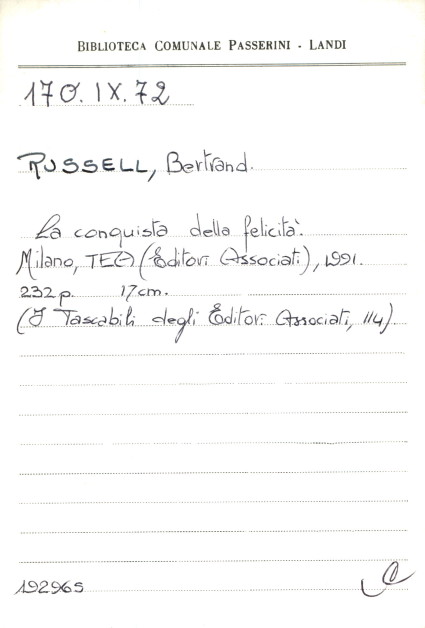 BIBLIOTECA COMUNALE PASSERINI - LANDI
170.IX.72
RUSSELL, Bertrand.
La conquista della felicità.
Milano, TEA (Editori Associati), 1991.
232 p. 17 cm.
(I Tascabili degli Editori Associati, 114).
192965